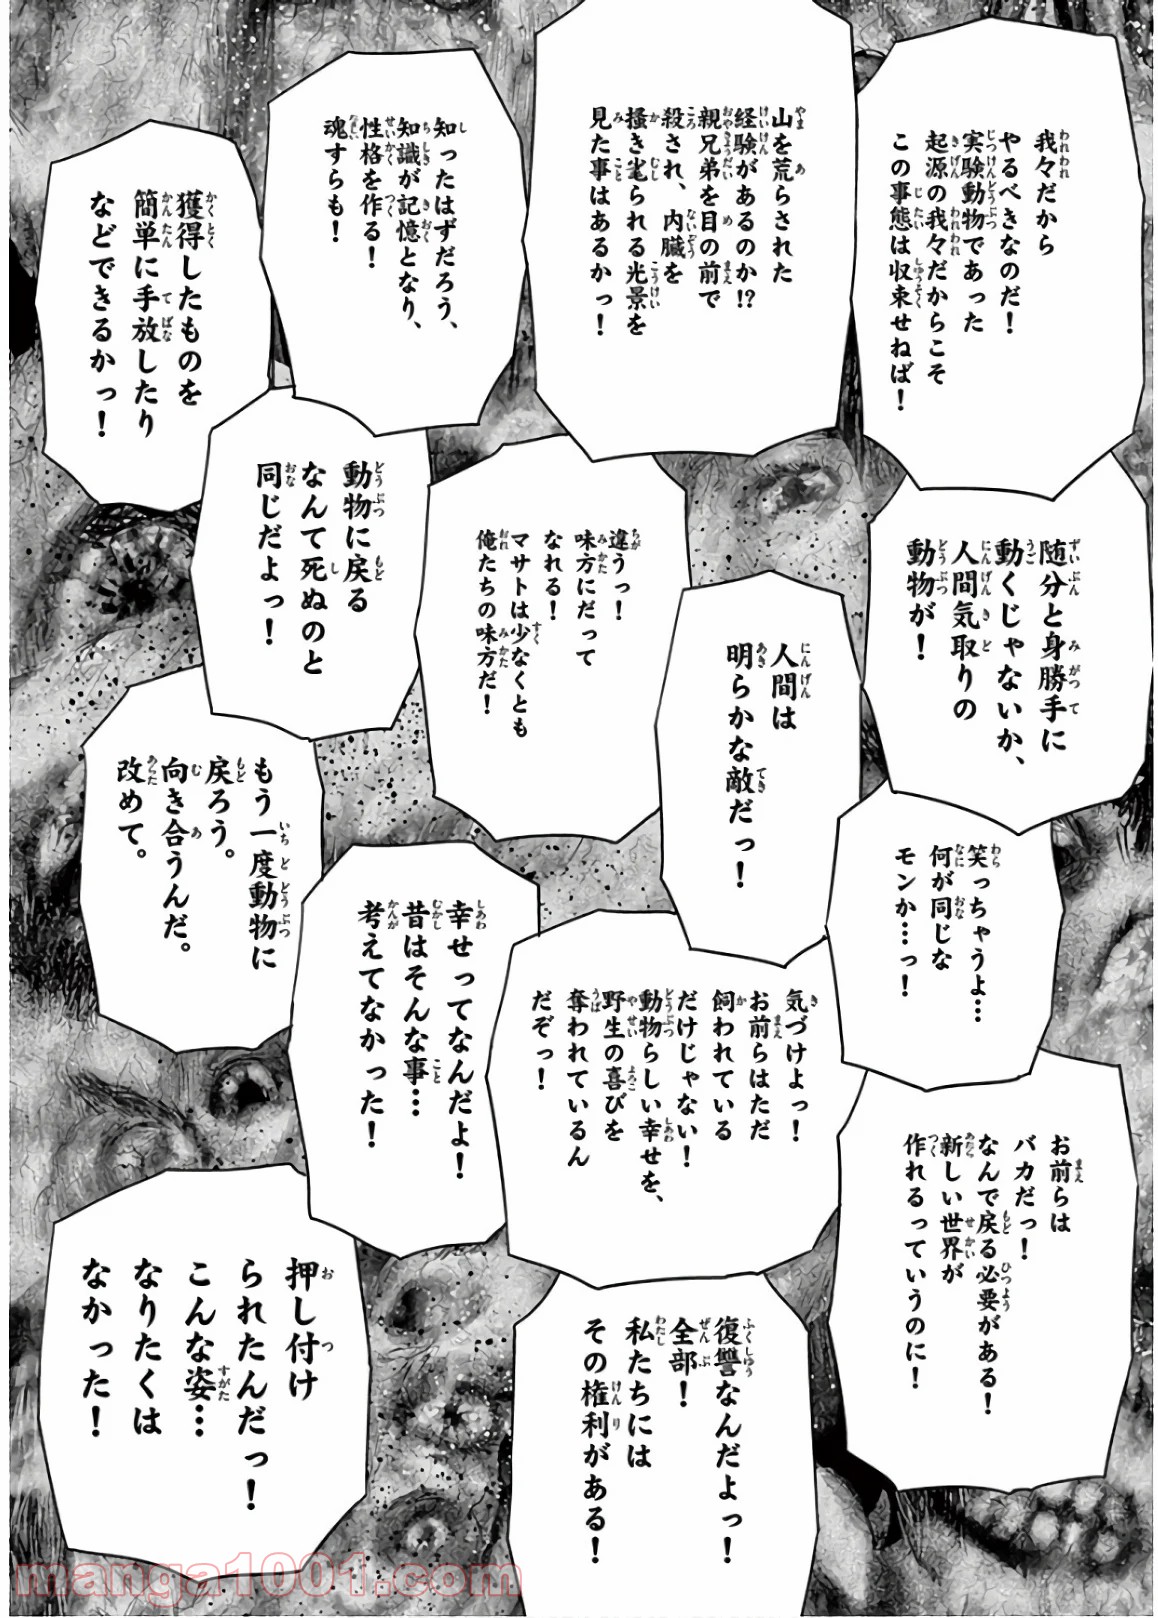 我々だから
やるべきなのだ！
実験動物であった
起源の我々だからこそ
この事態は収束せねば！
山を荒らされた
経験があるのか!?
親兄弟を目の前で
殺され、内臓を
掻き毟られる光景を
見た事はあるかっ！
知ったはずだろう、
知識が記憶となり、
性格を作る！
魂すらも！
獲得したものを
簡単に手放したり
などできるかっ！
随分と身勝手に
動くじゃないか、
人間気取りの
動物が！
人間は
明らかな敵だっ！
違うっ！
味方にだって
なれる！
マサトは少なくとも
俺たちの味方だ！
動物に戻る
なんて死ぬのと
同じだよっ！
笑っちゃうよ…
何が同じな
モンか…っ！
気づけよっ！
お前らはただ
飼われている
だけじゃない！
動物らしい幸せを、
野生の喜びを
奪われているん
だぞっ！
幸せってなんだよ！
昔はそんな事…
考えてなかった！
もう一度動物に
戻ろう。
向き合うんだ。
改めて。
お前らは
バカだっ！
なんで戻る必要がある！
新しい世界が
作れるっていうのに！
復讐なんだよっ！
全部！
私たちには
その権利がある！
押し付け
られたんだっ！
こんな姿…
なりたくは
なかった！
manga1001.com